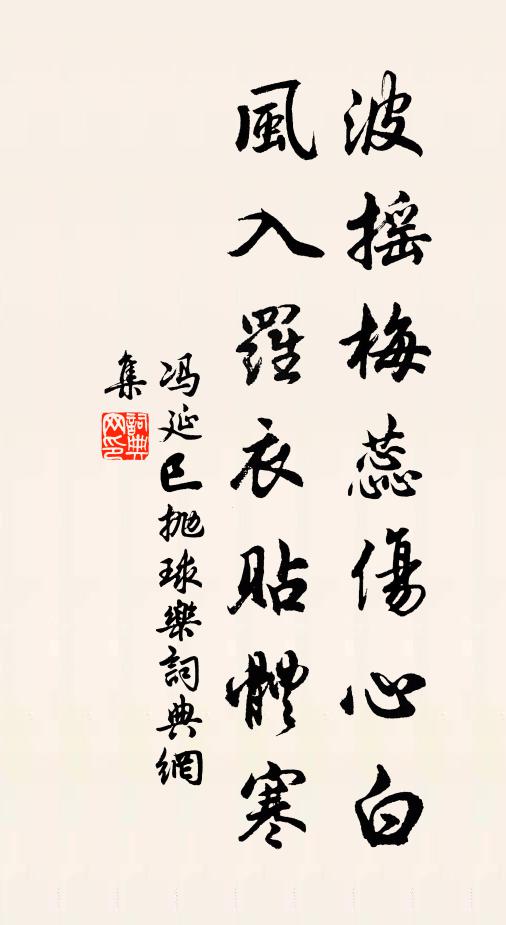 波搖梅蕊傷心白
風入羅衣貼體寒
冯延巳抛球樂詞典網
集
詞典
网印